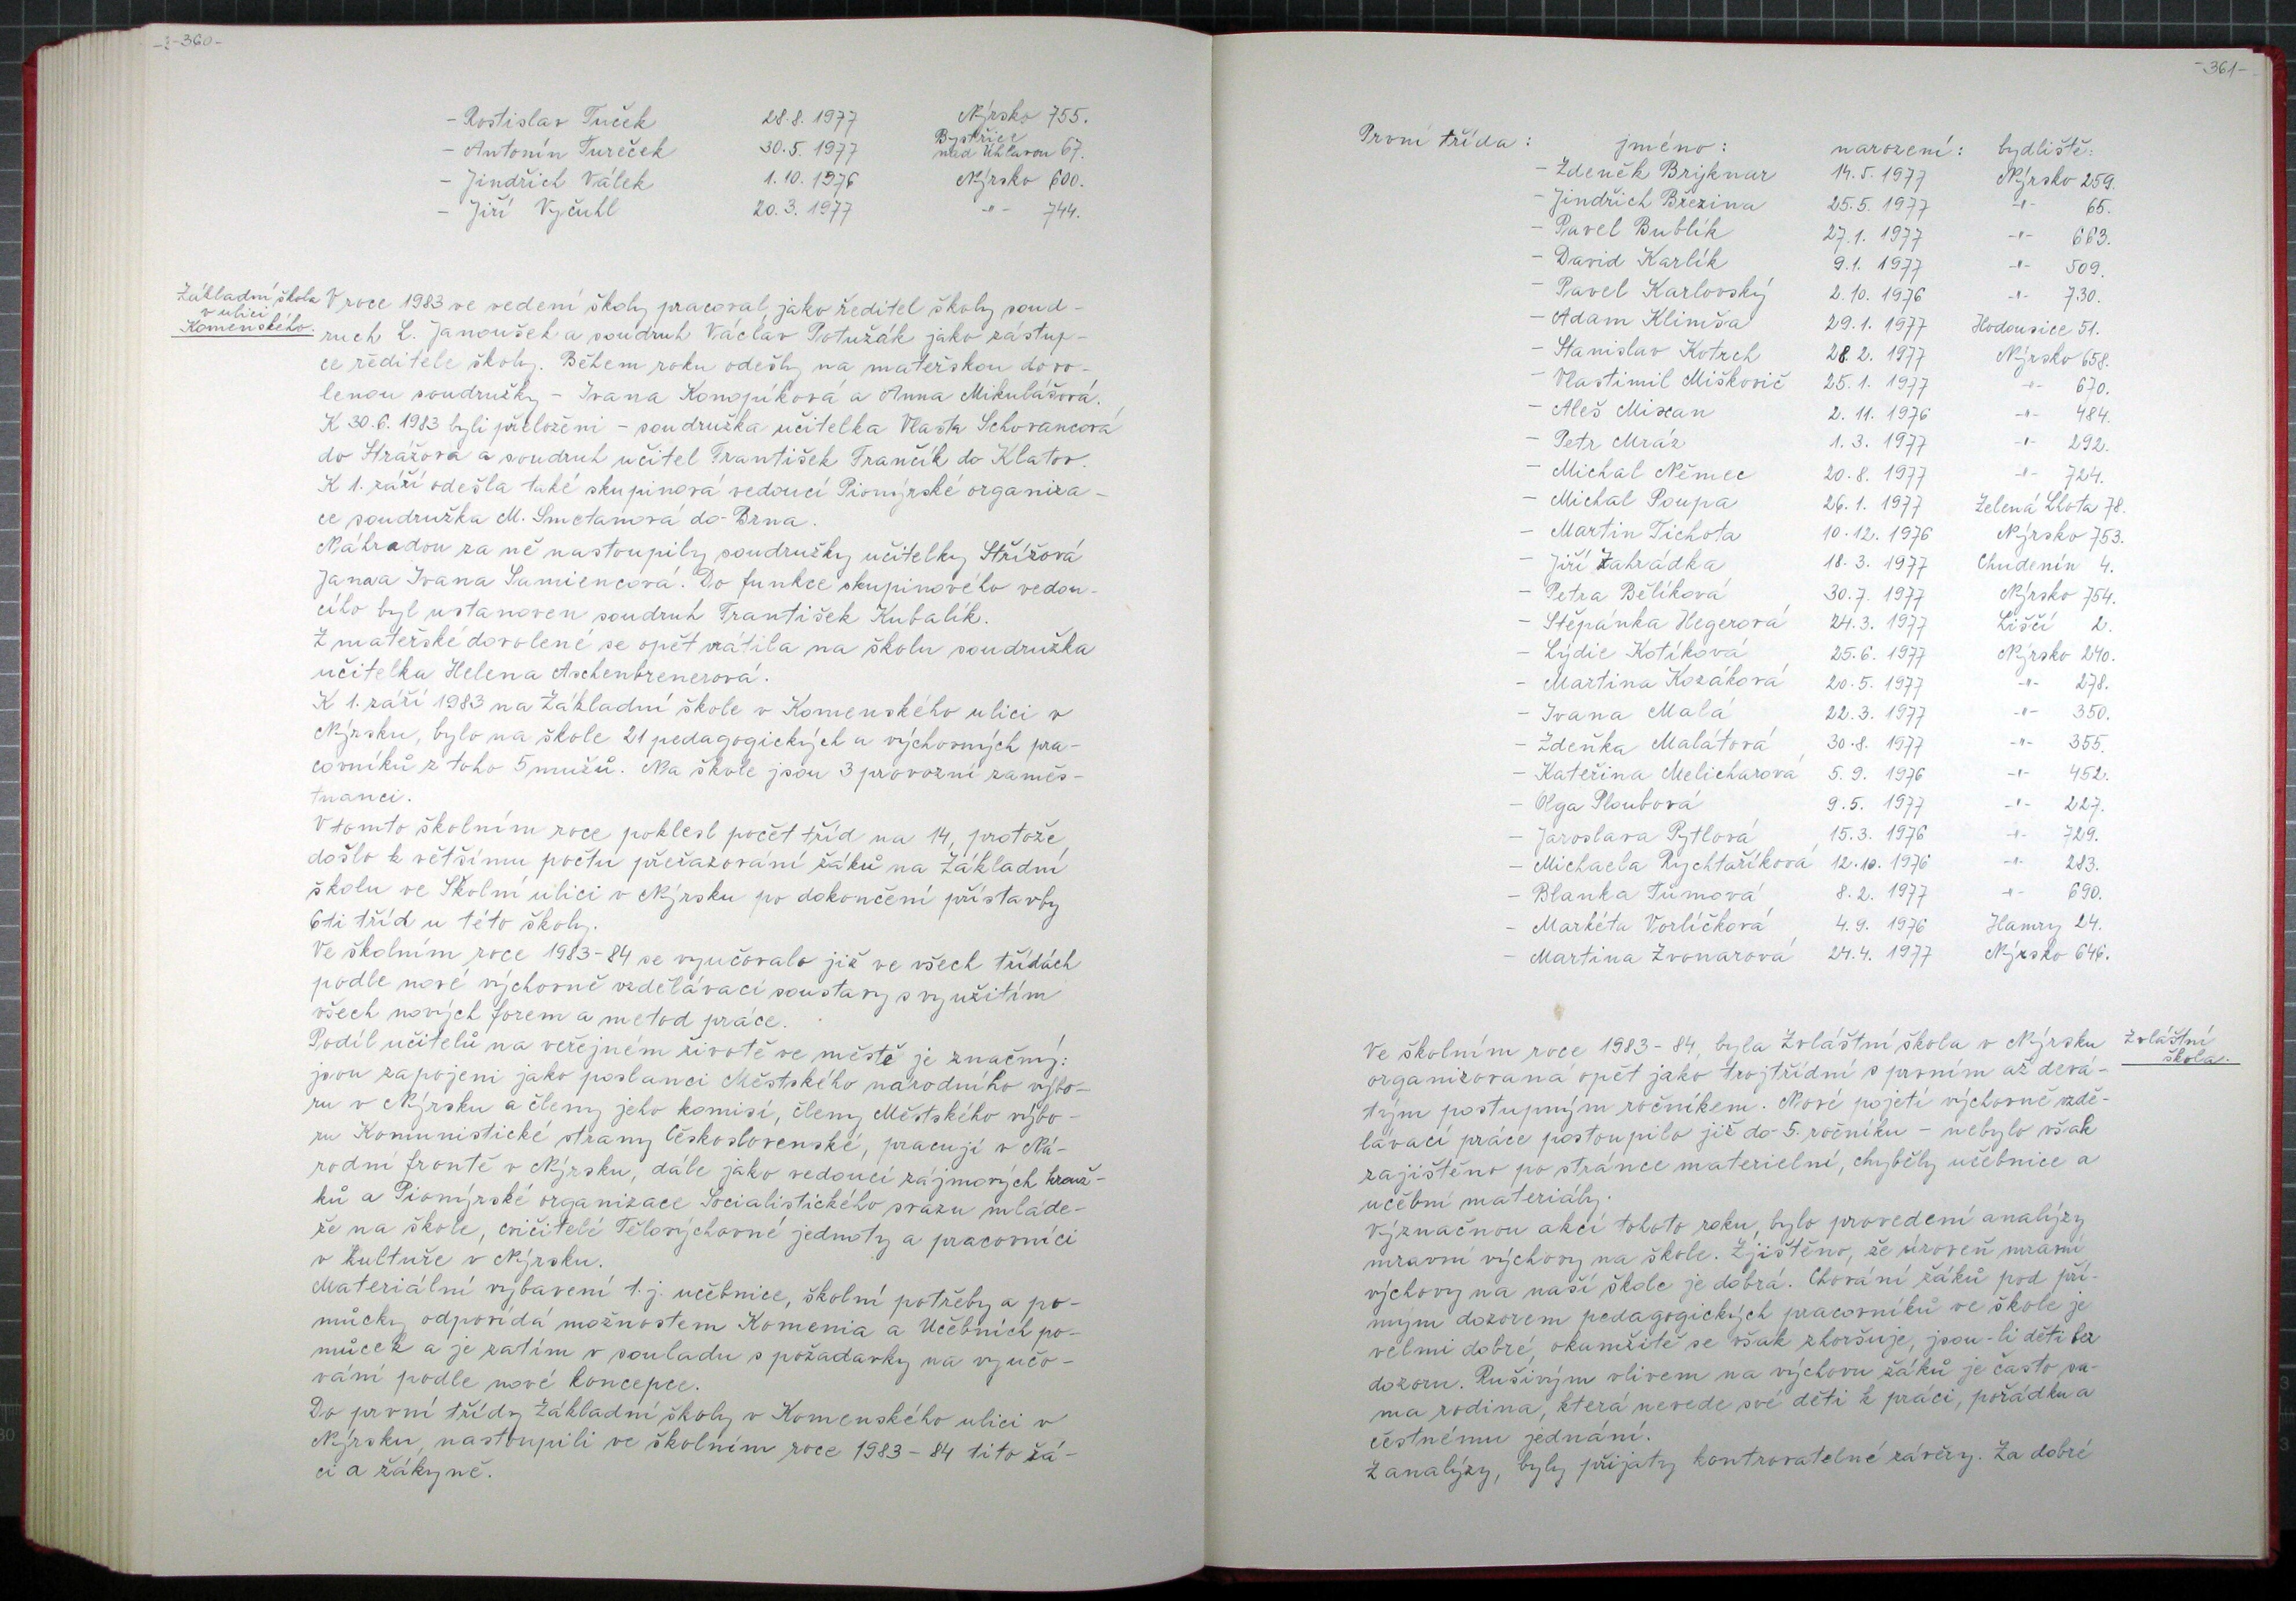 -360-
- Rostislav Tuček 28.8.1977 Nýrsko 755.
- Antonín Tureček 30.5.1977 Bystřice nad Úhlavou 67.
- Jindřich Válek 1.10.1976 Nýrsko 600.
- Jiří Vyčuhl 20.3.1977 -"- 744.
Základní škola
v ulici
Komenského.
V roce 1983 ve vedení školy pracoval jako ředitel školy soud-
ruch L. Janoušek a soudruh Václav Potužák jako zástup-
ce ředitele školy. Během roku odešly na mateřskou dovo-
lenou soudružky - Ivana Konopíková a Anna Mikulášová.
K 30.6.1983 byli přeloženi - soudružka učitelka Vlasta Schovancová
do Strážova a soudruh učitel František Frančík do Klatov.
K 1. září odešla také skupinová vedoucí Pionýrské organiza-
ce soudružka M. Smetanová do Brna.
Náhradou za ně nastoupily soudružky učitelky Střížová
Jana a Ivana Samiencová. Do funkce skupinového vedou-
cího byl ustanoven soudruh František Kubalík.
Z mateřské dovolené se opět vrátila na školu soudružka
učitelka Helena Aschenbrenerová.
K 1. září 1983 na Základní škole v Komenského ulici v
Nýrsku, bylo na škole 21 pedagogických a výchovných pra-
covníků z toho 5 mužů. Na škole jsou 3 provozní zaměs-
tnanci.
V tomto školním roce poklesl počet tříd na 14, protože
došlo k většímu počtu přeřazování žáků na Základní
školu ve Školní ulici v Nýrsku po dokončení přístavby
6ti tříd u této školy.
Ve školním roce 1983-84 se vyučovalo již ve všech třídách
podle nové výchovně vzdělávací soustavy s využitím
všech nových forem a metod práce.
Podíl učitelů na veřejném životě ve městě je značný:
jsou zapojeni jako poslanci Městského národního výbo-
ru v Nýrsku a členy jeho komisí, členy Městského výbo-
ru Komunistické strany Československé, pracují v Ná-
rodní frontě v Nýrsku, dále jako vedoucí zájmových krouž-
ků a Pionýrské organizace Socialistického svazu mláde-
že na škole, cvičitelé Tělovýchovné jednoty a pracovníci
v kultuře v Nýrsku.
Materiální vybavení t.j. učebnice, školní potřeby a po-
můcky odpovídá možnostem Komenia a Učebních po-
můcek a je zatím v souladu s požadavky na vyučo-
vání podle nové koncepce.
Do první třídy Základní školy v Komenského ulici v
Nýrsku, nastoupili ve školním roce 1983-84 tito žá-
ci a žákyně.
-361-
První třída: jméno: narození: bydliště:
- Zdeněk Bryknar 14.5.1977 Nýrsko 259.
- Jindřich Březina 25.5.1977 -"- 65.
- Pavel Bublík 27.1.1977 -"- 663.
- David Karlík 9.1.1977 -"- 509.
- Pavel Karlovský 2.10.1976 -"- 730.
- Adam Klimša 29.1.1977 Hodousice 51.
- Stanislav Kotrch 28.2.1977 Nýrsko 658.
- Vlastimil Miškovič 25.1.1977 -"- 670.
- Aleš Mixan 2.11.1976 -"- 484.
- Petr Mráz 1.3.1977 -"- 292.
- Michal Němec 20.8.1977 -"- 724.
- Michal Poupa 26.1.1977 Zelená Lhota 78.
- Martin Tichota 10.12.1976 Nýrsko 753.
- Jiří Zahrádka 18.3.1977 Chudenín 4.
- Petra Bělíková 30.7.1977 Nýrsko 754.
- Stěpánka Hegerová 24.3.1977 Liščí 2.
- Lýdie Kotíková 25.6.1977 Nýrsko 240.
- Martina Kozáková 20.5.1977 -"- 278.
- Ivana Malá 22.3.1977 -"- 350.
- Zdeňka Malátová 30.8.1977 -"- 355.
- Kateřina Melicharová 5.9.1976 -"- 452.
- Olga Ploubová 9.5.1977 -"- 227.
- Jaroslava Pytlová 15.3.1976 -"- 729.
- Michaela Rychtaříková 12.10.1976 -"- 283.
- Blanka Tůmová 8.2.1977 -"- 690.
- Markéta Vorlíčková 4.9.1976 Hamry 24.
- Martina Zvonařová 24.4.1977 Nýrsko 646.
Zvláštní
škola.
Ve školním roce 1983-84, byla Zvláštní škola v Nýrsku
organizovaná opět jako trojtřídní s prvním až devá-
tým postupným ročníkem. Nové pojetí výchovně vzdě-
lávací práce postoupilo již do 5. ročníku - nebylo však
zajištěno po stránce materielní, chyběly učebnice a
učební materiály.
Význačnou akcí tohoto roku, bylo provedení analýzy
mravní výchovy na škole. Zjištěno, že úroveň mravní
výchovy na naší škole je dobrá. Chování žáků pod pří-
mým dozorem pedagogických pracovníků ve škole je
velmi dobré, okamžitě se však zhoršuje, jsou-li děti bez
dozoru. Rušivým vlivem na výchovu žáků je často sa-
ma rodina, která nevede své děti k práci, pořádku a
čestnému jednání.
Z analýzy, byly přijaty kontrovatelné závěry. Za dobré